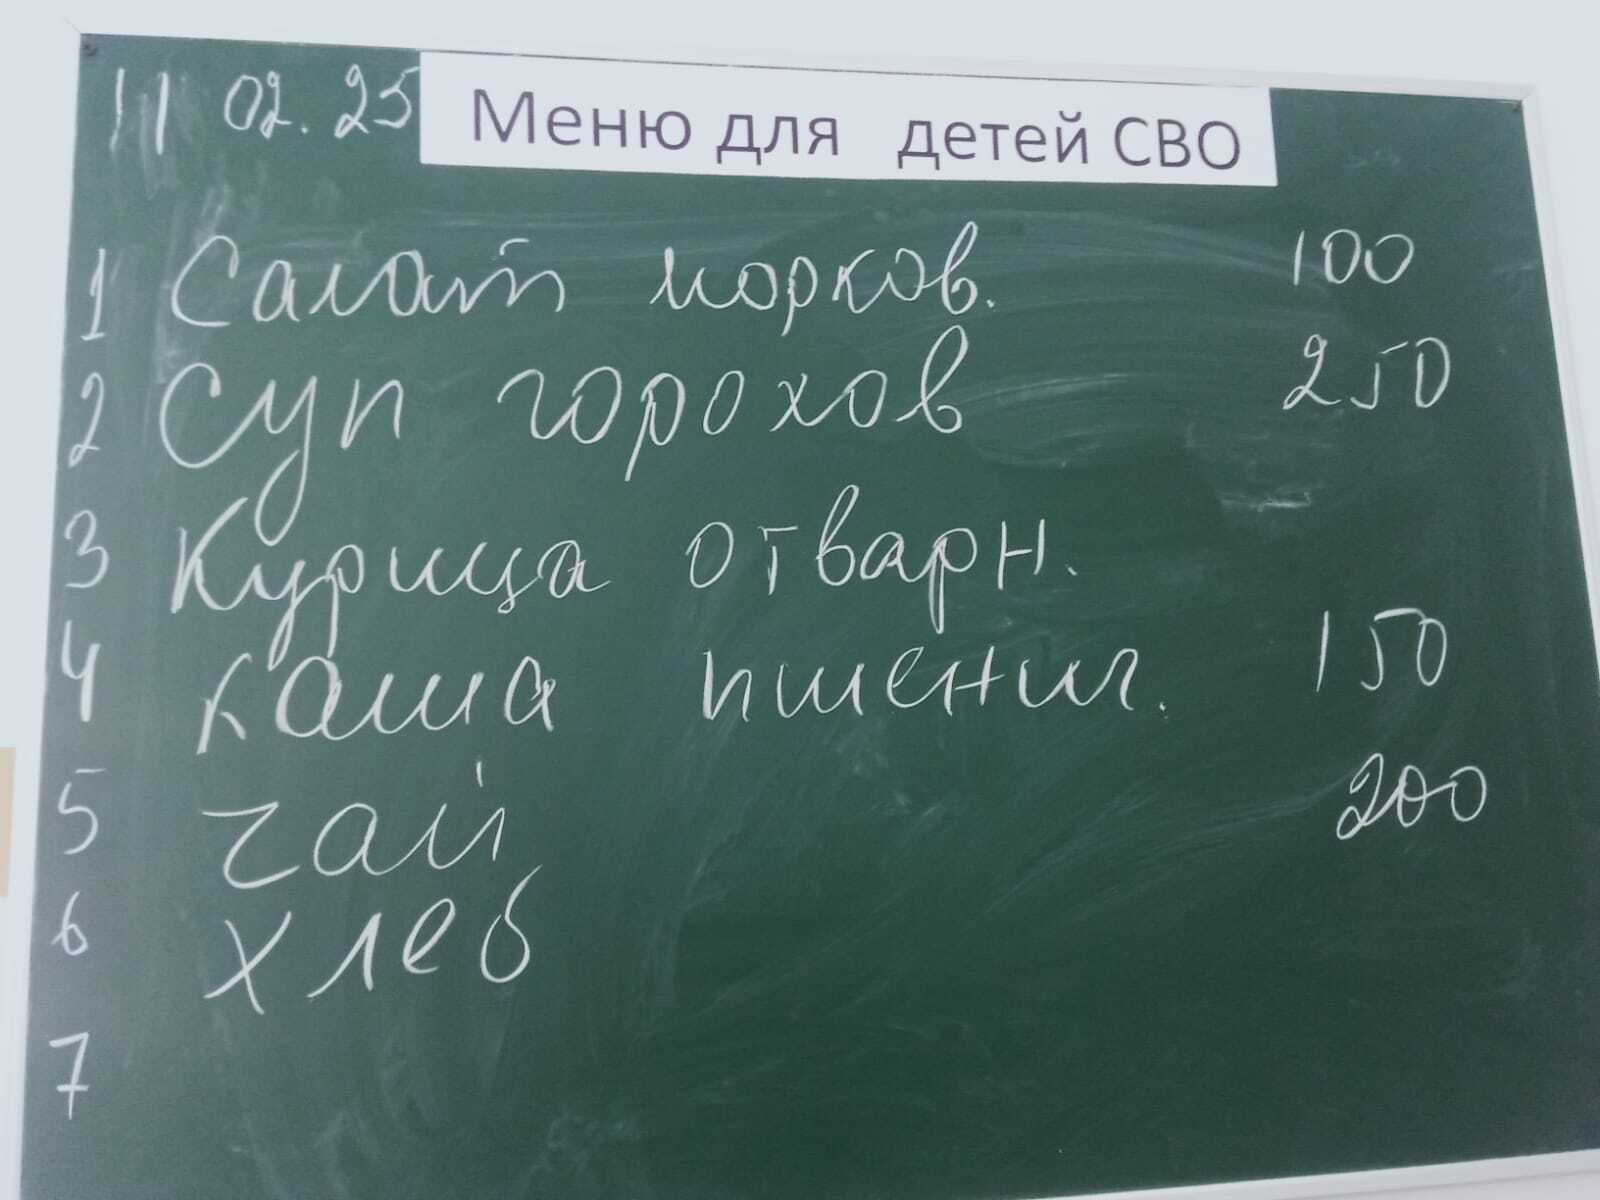 11 02.25 Меню для детей СВО
1 Салат морков. 100
2 Суп горохов 250
3 Курица отварн.
4 Каша пшенич. 150
5 Чай 200
6 Хлеб
7